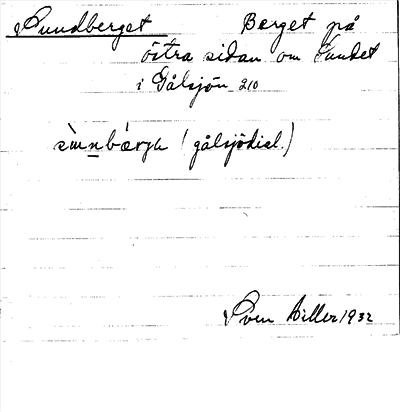 Sundberget Berget på
östra sidan om Sundet
i Gålsjön 210
(gålsjödial.)
Sven Hiller 1932